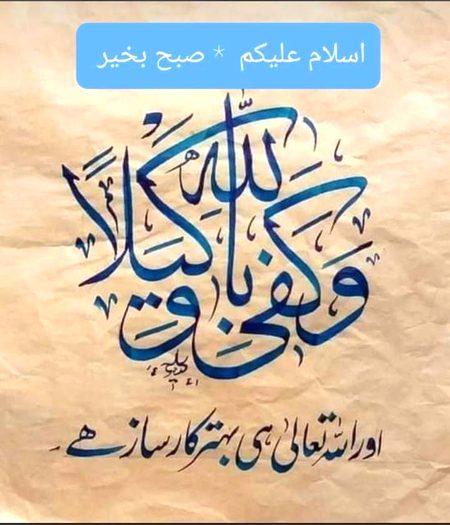 اسلام علیکم * صبح بخیر
وَكَفَىٰ بِاللَّهِ وَكِيلًا
اور اللہ تعالیٰ ہی بہتر کارساز ھے۔